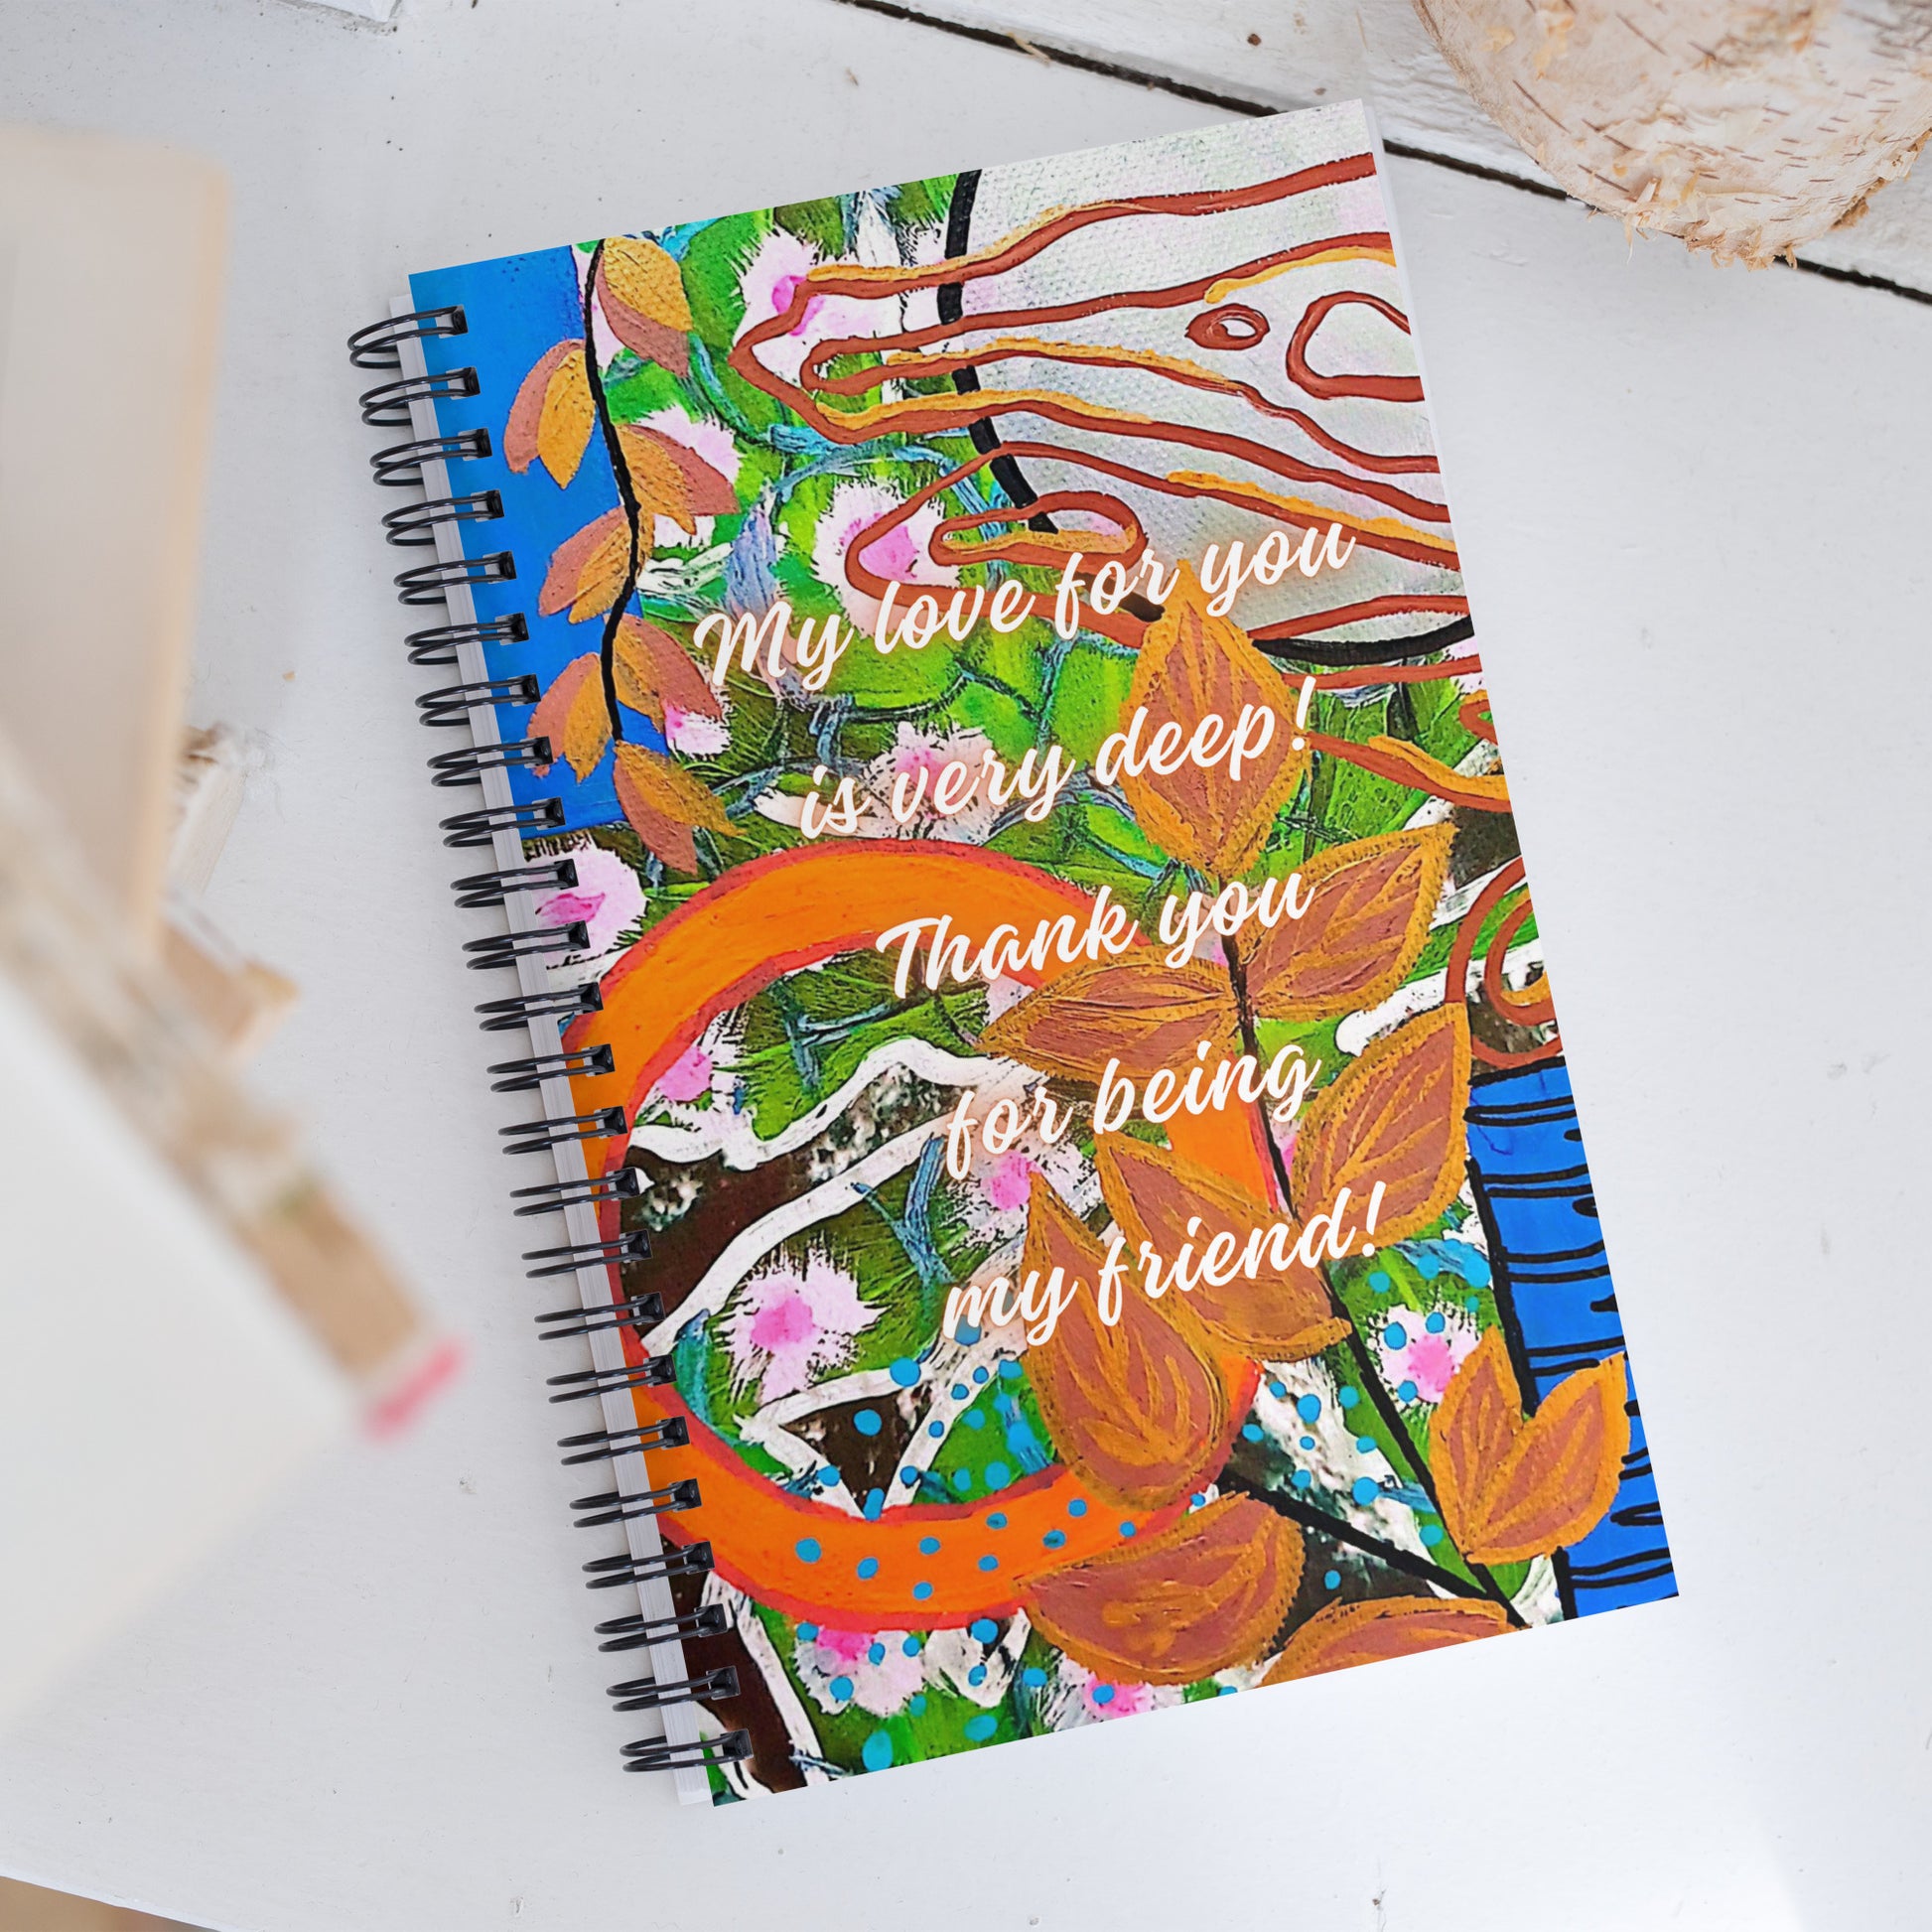 My love for you
is very deep!
Thank you
for being
my friend!